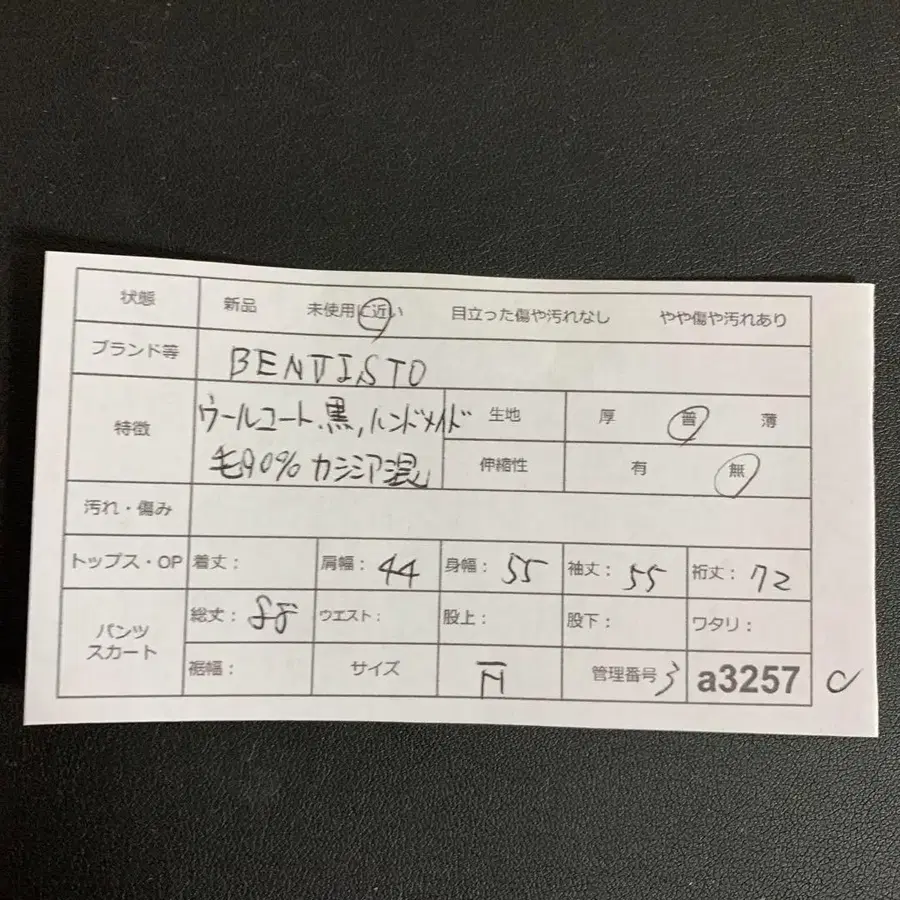 状態 新品 未使用に近い 目立った傷や汚れなし やや傷や汚れあり
ブランド等 BENJISTO
特徴 ウールコート、黒,ハンドメイド 生地 厚 普 薄
毛90% カシミア混 伸縮性 有 無
汚れ・傷み
トップス・OP 着丈: 肩幅: 44 身幅: 55 袖丈: 55 裄丈: 72
パンツ スカート 総丈: 88 ウエスト: 股上: 股下: ワタリ:
裾幅: サイズ 管理番号 3 a3257 C